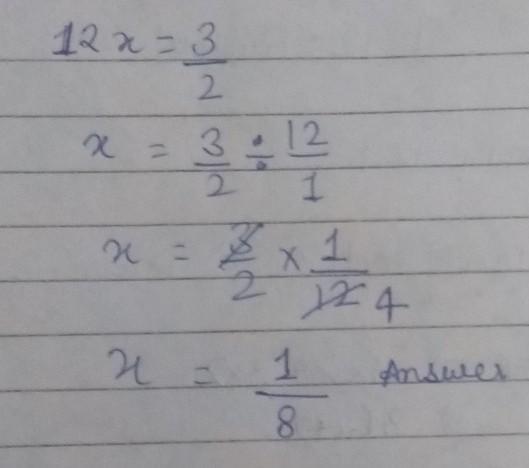 12x = 3/2
x = 3/2 ÷ 12/1
x = 3/2 × 1/12 4
x = 1/8 Answer